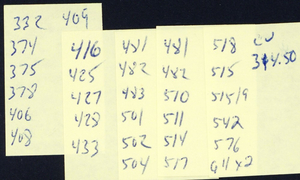 332 409
374 416 481 481 518 20
375 425 482 482 515 314.50
378 427 483 510 515/9
406 428 501 511 542
408 433 502 514 576
504 517 G11x2